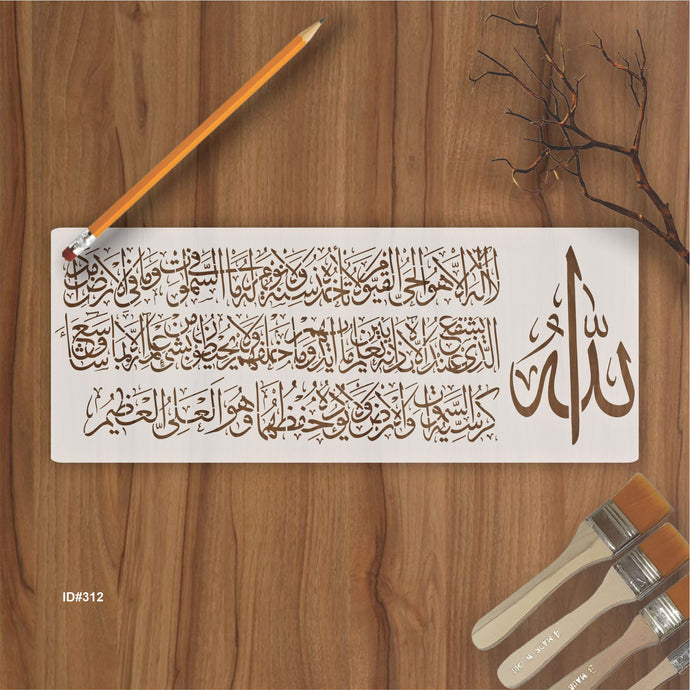 الله
لا إله إلا هو الحي القيوم لا تأخذه سنة ولا نوم له ما في السموات وما في الأرض من ذا
الذي يشفع عنده إلا بإذنه يعلم ما بين أيديهم وما خلفهم ولا يحيطون بشيء من علمه إلا بما شاء وسع
كرسيه السموات والأرض ولا يؤده حفظهما وهو العلي العظيم
ID#312